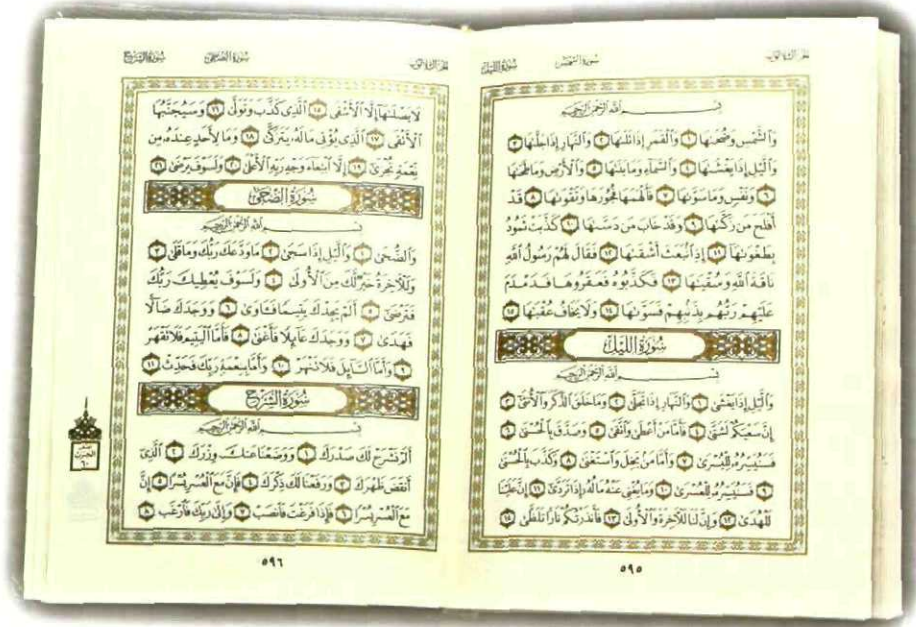 الجزء الثلاثون
سورة الشمس
سورة الليل
بسم الله الرحمن الرحيم
وَالشَّمْسِ وَضُحَىٰهَا ١ وَالْقَمَرِ إِذَا تَلَىٰهَا ٢ وَالنَّهَارِ إِذَا جَلَّىٰهَا ٣
وَالَّيْلِ إِذَا يَغْشَىٰهَا ٤ وَالسَّمَاءِ وَمَا بَنَىٰهَا ٥ وَالْأَرْضِ وَمَا طَحَىٰهَا
٦ وَنَفْسٍ وَمَا سَوَّىٰهَا ٧ فَأَلْهَمَهَا فُجُورَهَا وَتَقْوَىٰهَا ٨ قَدْ
أَفْلَحَ مَن زَكَّىٰهَا ٩ وَقَدْ خَابَ مَن دَسَّىٰهَا ١٠ كَذَّبَتْ ثَمُودُ
بِطَغْوَىٰهَا ١١ إِذِ انۢبَعَثَ أَشْقَىٰهَا ١٢ فَقَالَ لَهُمْ رَسُولُ اللَّهِ
نَاقَةَ اللَّهِ وَسُقْيَٰهَا ١٣ فَكَذَّبُوهُ فَعَقَرُوهَا فَدَمْدَمَ
عَلَيْهِمْ رَبُّهُم بِذَنۢبِهِمْ فَسَوَّىٰهَا ١٤ وَلَا يَخَافُ عُقْبَٰهَا ١٥
سورة الليل
بسم الله الرحمن الرحيم
وَالَّيْلِ إِذَا يَغْشَىٰ ١ وَالنَّهَارِ إِذَا تَجَلَّىٰ ٢ وَمَا خَلَقَ الذَّكَرَ وَالْأُنثَىٰ ٣
إِنَّ سَعْيَكُمْ لَشَتَّىٰ ٤ فَأَمَّا مَنْ أَعْطَىٰ وَاتَّقَىٰ ٥ وَصَدَّقَ بِالْحُسْنَىٰ ٦
فَسَنُيَسِّرُهُ لِلْيُسْرَىٰ ٧ وَأَمَّا مَنۢ بَخِلَ وَاسْتَغْنَىٰ ٨ وَكَذَّبَ بِالْحُسْنَىٰ
٩ فَسَنُيَسِّرُهُ لِلْعُسْرَىٰ ١٠ وَمَا يُغْنِي عَنْهُ مَالُهُ إِذَا تَرَدَّىٰ ١١ إِنَّ عَلَيْنَا
لَلْهُدَىٰ ١٢ وَإِنَّ لَنَا لَلْآخِرَةَ وَالْأُولَىٰ ١٣ فَأَنذَرْتُكُمْ نَارًا تَلَظَّىٰ ١٤
٥٩٥
الجزء الثلاثون
سورة الضحى
سورة الشرح
لَا يَصْلَىٰهَا إِلَّا الْأَشْقَى ١٥ الَّذِي كَذَّبَ وَتَوَلَّىٰ ١٦ وَسَيُجَنَّبُهَا
الْأَتْقَى ١٧ الَّذِي يُؤْتِي مَالَهُ يَتَزَكَّىٰ ١٨ وَمَا لِأَحَدٍ عِندَهُ مِن
نِّعْمَةٍ تُجْزَىٰ ١٩ إِلَّا ابْتِغَاءَ وَجْهِ رَبِّهِ الْأَعْلَىٰ ٢٠ وَلَسَوْفَ يَرْضَىٰ ٢١
سورة الضحى
بسم الله الرحمن الرحيم
وَالضُّحَىٰ ١ وَالَّيْلِ إِذَا سَجَىٰ ٢ مَا وَدَّعَكَ رَبُّكَ وَمَا قَلَىٰ ٣
وَلَلْآخِرَةُ خَيْرٌ لَّكَ مِنَ الْأُولَىٰ ٤ وَلَسَوْفَ يُعْطِيكَ رَبُّكَ
فَتَرْضَىٰ ٥ أَلَمْ يَجِدْكَ يَتِيمًا فَـَٔاوَىٰ ٦ وَوَجَدَكَ ضَالًّا
فَهَدَىٰ ٧ وَوَجَدَكَ عَائِلًا فَأَغْنَىٰ ٨ فَأَمَّا الْيَتِيمَ فَلَا تَقْهَرْ
٩ وَأَمَّا السَّائِلَ فَلَا تَنْهَرْ ١٠ وَأَمَّا بِنِعْمَةِ رَبِّكَ فَحَدِّثْ ١١
سورة الشرح
بسم الله الرحمن الرحيم
أَلَمْ نَشْرَحْ لَكَ صَدْرَكَ ١ وَوَضَعْنَا عَنكَ وِزْرَكَ ٢ الَّذِي
أَنقَضَ ظَهْرَكَ ٣ وَرَفَعْنَا لَكَ ذِكْرَكَ ٤ فَإِنَّ مَعَ الْعُسْرِ يُسْرًا ٥ إِنَّ
مَعَ الْعُسْرِ يُسْرًا ٦ فَإِذَا فَرَغْتَ فَانصَبْ ٧ وَإِلَىٰ رَبِّكَ فَارْغَب ٨
الحزب
٦٠
٥٩٦